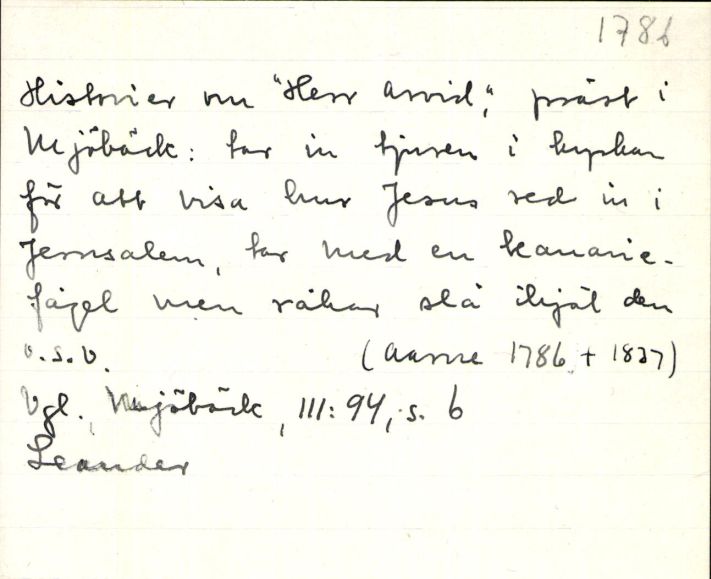 1786
Historier om "Herr Arvid", präst i
Mjöbäck: tar in tjuren i kyrkan
för att visa hur Jesus red in i
Jerusalem, tar med en kanarie-
fågel men råkar slå ihjäl den
o.s.v. (Aarne 1786 + 1837)
Vgl., Mjöbäck, III:94, s. 6
Leander